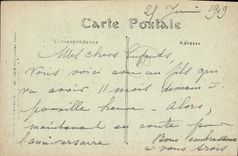 25 Juin 1919
Carte Postale
Correspondance
Adresse
Mes chers Enfants
Vous voici avec un fils qui
va avoir 11 mois demain à
pareille heure - Alors,
maintenant en route pour
l'anniversaire
Bons embrassons
à vous trois